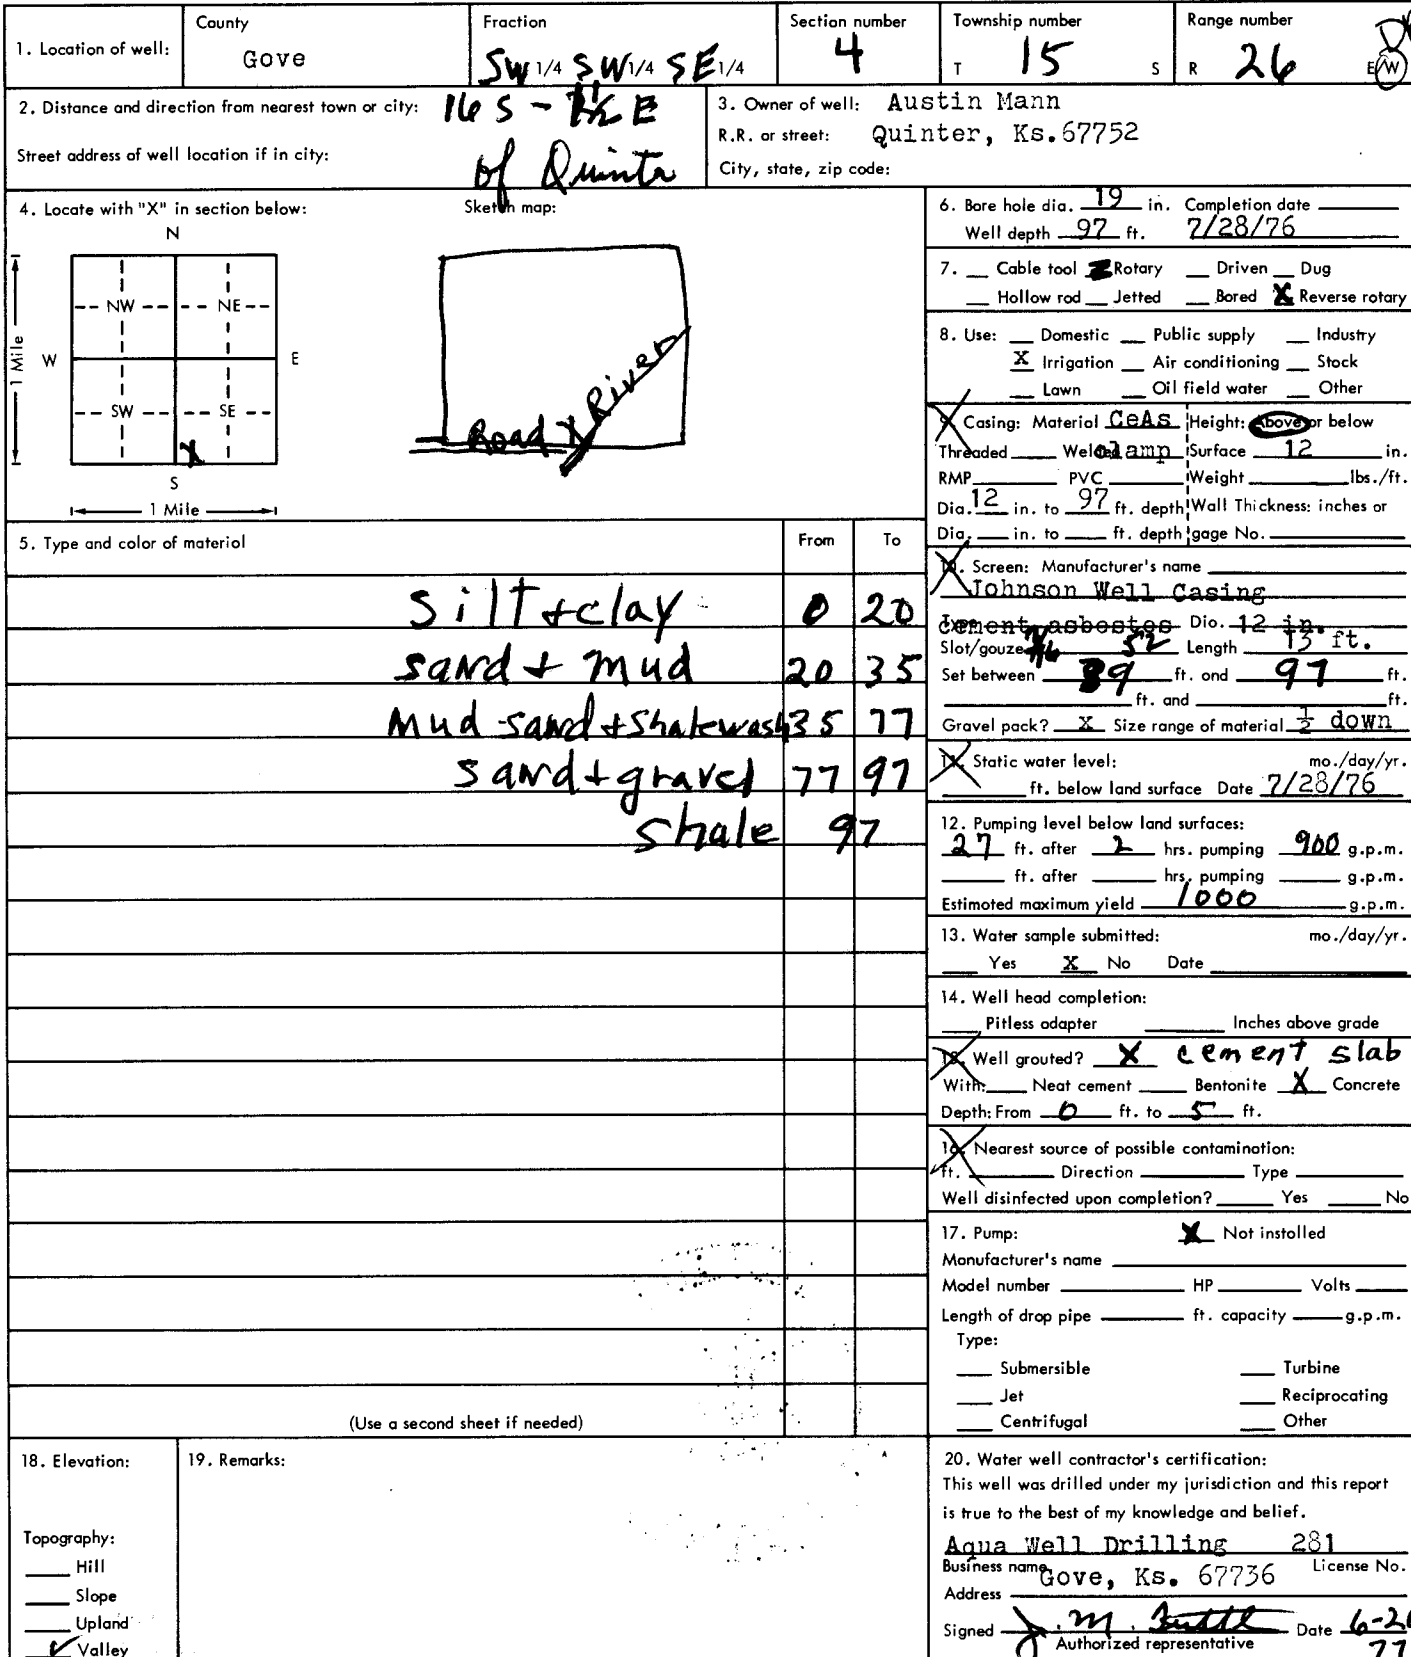 1. Location of well: County Gove Fraction SW 1/4 SW 1/4 SE 1/4 Section number 4 Township number T 15 S Range number R 26 E/W
2. Distance and direction from nearest town or city: 16 S - E of Quinter
Street address of well location if in city:
3. Owner of well: Austin Mann
R.R. or street: Quinter, Ks.67752
City, state, zip code:
4. Locate with "X" in section below:
N
NW NE
W E
SW SE
X
S
1 Mile
1 Mile
Sketch map:
River
Road X
5. Type and color of material From To
silt + clay 0 20
sand + mud 20 35
Mud sand + shalewash 35 77
sand + gravel 77 97
shale 97
(Use a second sheet if needed)
6. Bore hole dia. 19 in. Completion date
Well depth 97 ft. 7/28/76
7. Cable tool Rotary Driven Dug
Hollow rod Jetted Bored X Reverse rotary
8. Use: Domestic Public supply Industry
X Irrigation Air conditioning Stock
Lawn Oil field water Other
9. Casing: Material CeAs Height: Above or below
Threaded Welded clamp Surface 12 in.
RMP PVC Weight lbs./ft.
Dia. 12 in. to 97 ft. depth Wall Thickness: inches or
Dia. in. to ft. depth gage No.
10. Screen: Manufacturer's name
Johnson Well Casing
Type cement asbestos Dia. 12 in.
Slot/gauze 52 Length 13 ft.
Set between ft. and 97 ft.
ft. and ft.
Gravel pack? X Size range of material ½ down
11. Static water level: mo./day/yr.
ft. below land surface Date 7/28/76
12. Pumping level below land surfaces:
27 ft. after 2 hrs. pumping 900 g.p.m.
ft. after hrs. pumping g.p.m.
Estimated maximum yield 1000 g.p.m.
13. Water sample submitted: mo./day/yr.
Yes X No Date
14. Well head completion:
Pitless adapter Inches above grade
15. Well grouted? X cement slab
With: Neat cement Bentonite X Concrete
Depth: From 0 ft. to 5 ft.
16. Nearest source of possible contamination:
ft. Direction Type
Well disinfected upon completion? Yes No
17. Pump: X Not installed
Manufacturer's name
Model number HP Volts
Length of drop pipe ft. capacity g.p.m.
Type:
Submersible Turbine
Jet Reciprocating
Centrifugal Other
18. Elevation:
Topography:
Hill
Slope
Upland
✓ Valley
19. Remarks:
20. Water well contractor's certification:
This well was drilled under my jurisdiction and this report
is true to the best of my knowledge and belief.
Aqua Well Drilling 281
Business name License No.
Gove, Ks. 67736
Address
Signed J. M. Date
Authorized representative 77